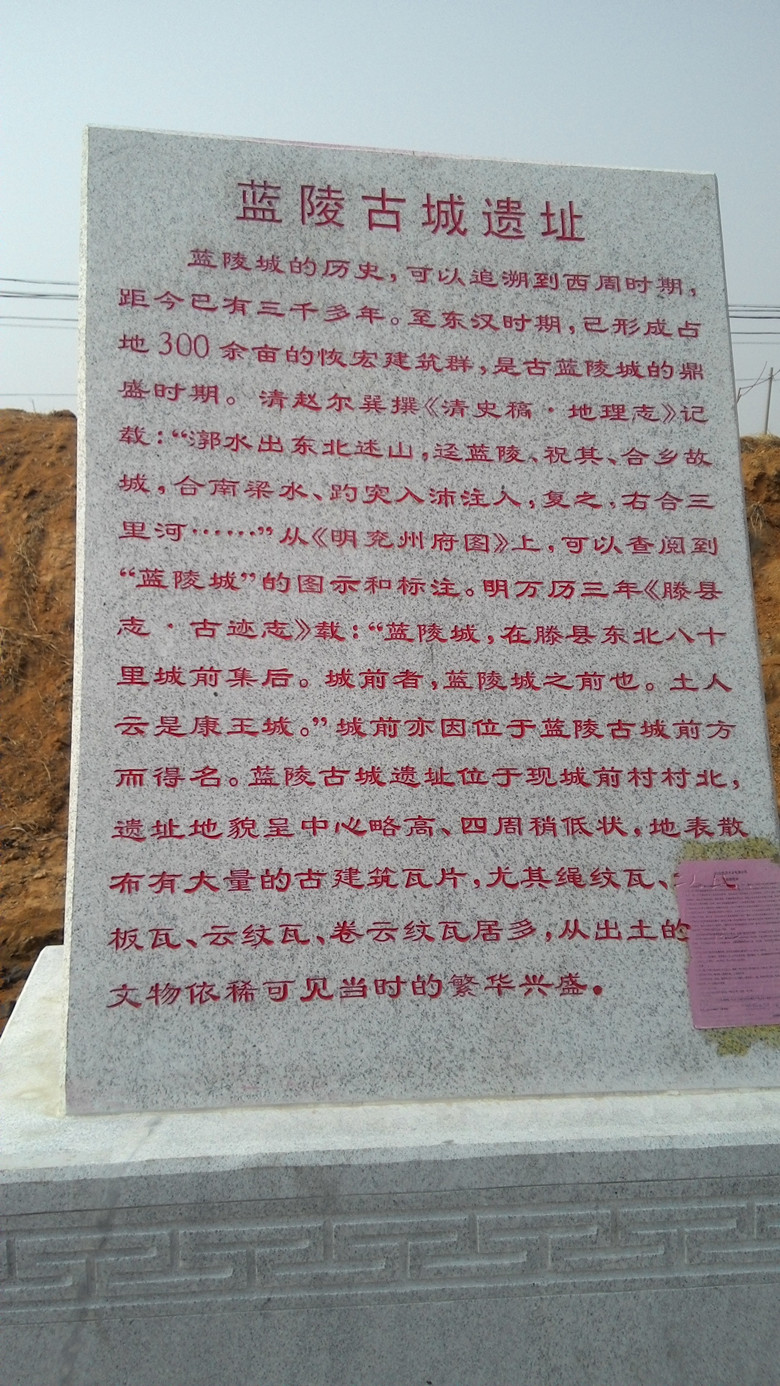 蓝陵古城遗址
蓝陵城的历史，可以追溯到西周时期，
距今已有三千多年。至东汉时期，已形成占
地300余亩的恢宏建筑群，是古蓝陵城的鼎
盛时期。清赵尔巽撰《清史稿·地理志》记
载：“漷水出东北述山，迳蓝陵、祝其、合乡故
城，合南梁水、趵突入沛注人，复之，右合三
里河……”从《明兖州府图》上，可以查阅到
“蓝陵城”的图示和标注。明万历三年《滕县
志·古迹志》载：“蓝陵城，在滕县东北八十
里城前集后。城前者，蓝陵城之前也。土人
云是康王城。”城前亦因位于蓝陵古城前方
而得名。蓝陵古城遗址位于现城前村村北，
遗址地貌呈中心略高、四周稍低状，地表散
布有大量的古建筑瓦片，尤其绳纹瓦、
板瓦、云纹瓦、卷云纹瓦居多，从出土的
文物依稀可见当时的繁华兴盛。